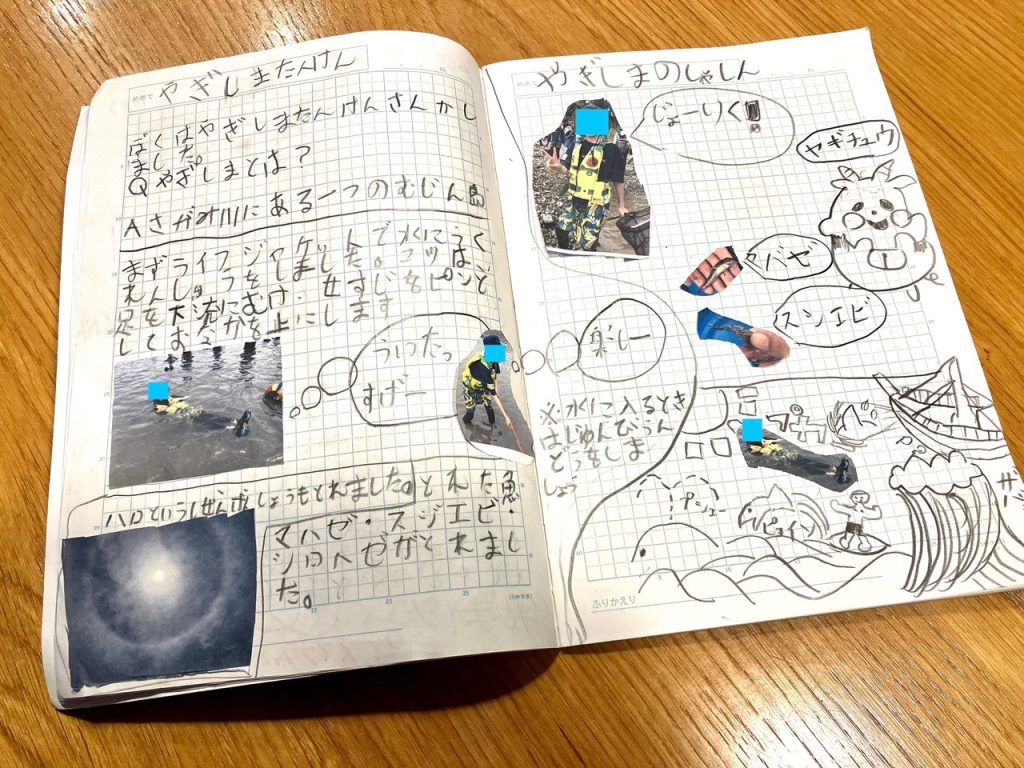 めあて やぎしまたんけん
ぼくはやぎしまたんけんさんかし
ました。
Qやぎしまとは？
Aさがみ川にある一つのむじん島
まずライフジャケットで水にうく
れんしゅうをしました。コツは
足を下流にむけ、せすじをピンと
しておなかを上にします
ういたっ
すげー
ハロというげんしょうもとれました。とれた魚
マハゼ・スジエビ・
シロハゼがとれまし
た。
めあて やぎしまのしゃしん
じょーりく!!
ヤギチュウ
マハゼ
スジエビ
楽しー
※水に入るとき
はじゅんびうん
どうをしま
しょう
ふりかえり